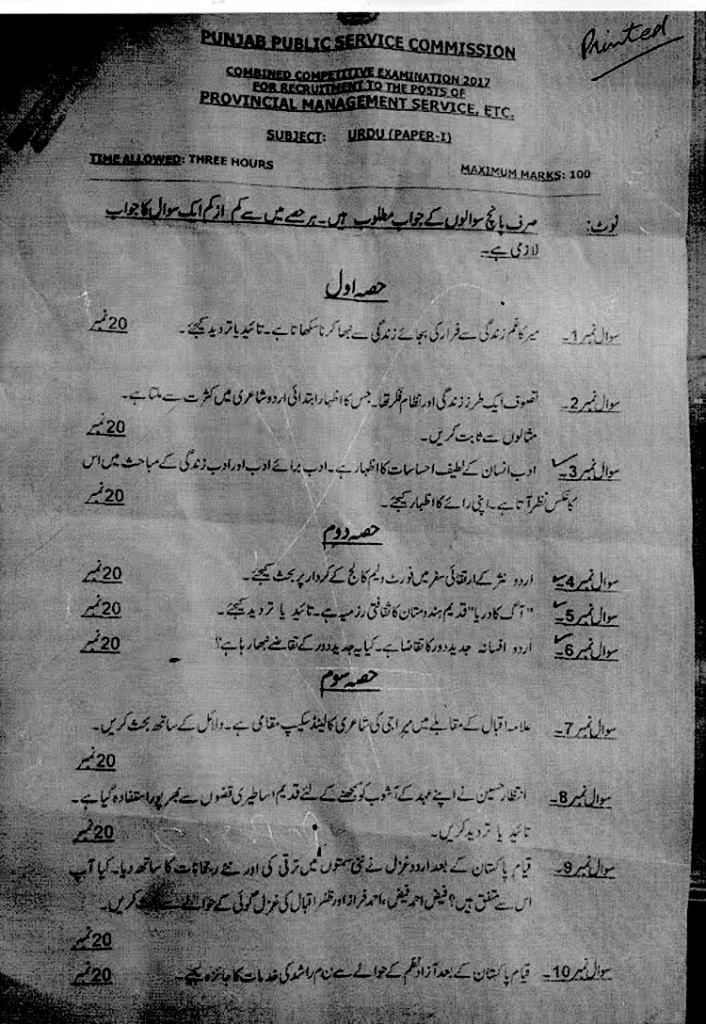 Printed
PUNJAB PUBLIC SERVICE COMMISSION
COMBINED COMPETITIVE EXAMINATION 2017
FOR RECRUITMENT TO THE POSTS OF
PROVINCIAL MANAGEMENT SERVICE, ETC.
SUBJECT: URDU (PAPER-I)
TIME ALLOWED: THREE HOURS MAXIMUM MARKS: 100
نوٹ: صرف پانچ سوالوں کے جواب مطلوب ہیں۔ ہر حصے میں سے کم از کم ایک سوال کا جواب
لازمی ہے۔
حصہ اول
سوال نمبر 1۔ میر کا غم زندگی سے فرار کی بجائے زندگی سے نبھا کرنا سکھاتا ہے۔ تائید یا تردید کیجئے۔ 20 نمبر
سوال نمبر 2۔ تصوف ایک طرز زندگی اور نظام فکر تھا۔ جس کا اظہار ابتدائی اردو شاعری میں کثرت سے ملتا ہے۔
مثالوں سے ثابت کریں۔ 20 نمبر
سوال نمبر 3۔ ادب انسان کے لطیف احساسات کا اظہار ہے۔ ادب برائے ادب اور ادب زندگی کے مباحث میں اس
کا عکس نظر آتا ہے۔ اپنی رائے کا اظہار کیجئے۔ 20 نمبر
حصہ دوم
سوال نمبر 4۔ اردو نثر کے ارتقائی سفر میں فورٹ ولیم کالج کے کردار پر بحث کیجئے۔ 20 نمبر
سوال نمبر 5۔ "آگ کا دریا" قدیم ہندوستان کا ثقافتی رزمیہ ہے۔ تائید یا تردید کیجئے۔ 20 نمبر
سوال نمبر 6۔ اردو افسانہ جدید دور کا تقاضا ہے۔ کیا یہ جدید دور کے تقاضے نبھا رہا ہے؟ 20 نمبر
حصہ سوم
سوال نمبر 7۔ علامہ اقبال کے مقابلے میں میرا جی کی شاعری کا لینڈ سکیپ مقامی ہے۔ دلائل کے ساتھ بحث کریں۔
20 نمبر
سوال نمبر 8۔ انتظار حسین نے اپنے عہد کے آشوب کو سمجھنے کے لئے قدیم اساطیری قصوں سے بھرپور استفادہ کیا ہے۔
تائید یا تردید کریں۔ 20 نمبر
سوال نمبر 9۔ قیام پاکستان کے بعد اردو غزل نے نئی سمتوں میں ترقی کی اور نئے رجحانات کا ساتھ دیا۔ کیا آپ
اس سے متفق ہیں؟ فیض احمد فیض، احمد فراز اور ظفر اقبال کی غزل گوئی کے حوالے سے بحث کریں۔
20 نمبر
سوال نمبر 10۔ قیام پاکستان کے بعد آزاد نظم کے حوالے سے ن م راشد کی خدمات کا جائزہ لیجئے۔ 20 نمبر